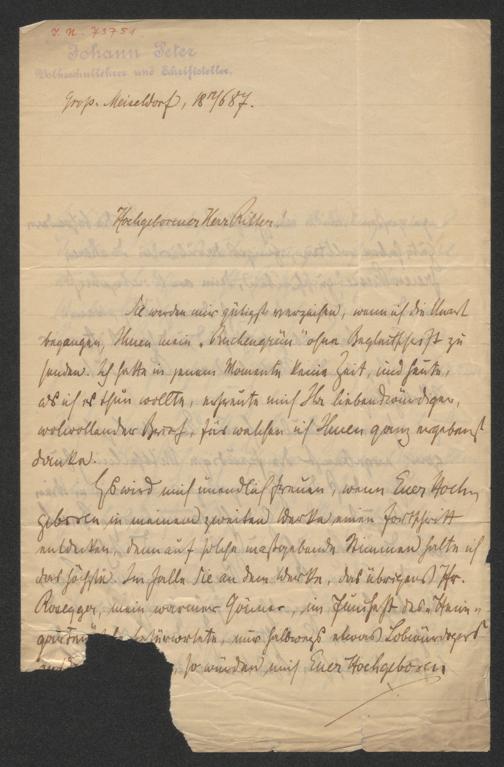 I. N. 73751
Johann Peter
Volksschullehrer und Schriftsteller.
Groß-Meiseldorf, 18 12/6 87.
Hochgeborener Herr Ritter!
Sie werden mir gütigst verzeihen, wenn ich die Unart
begangen, Ihnen mein „Buchengrün" ohne Begleitschrift zu
senden. Ich hatte in jenem Momente keine Zeit, und heute,
als ich es thun wollte, erfreute mich Ihr liebenswürdiger,
wolwollender Brief, für welchen ich Ihnen ganz ergebenst
danke.
Es wird mich unendlich freuen, wenn Euer Hoch-
geboren in meinem zweiten Werke einen Fortschritt
entdecken, denn auf solche maßgebende Stimmen halte ich
das höchste. Im Falle Sie an dem Werke, das übrigens Hr.
Rosegger, mein warmer Gönner, im Juniheft des „Heim-
garten" befürwortete, nur halbwegs etwas Lobwürdiges
so würden mich Euer Hochgeboren